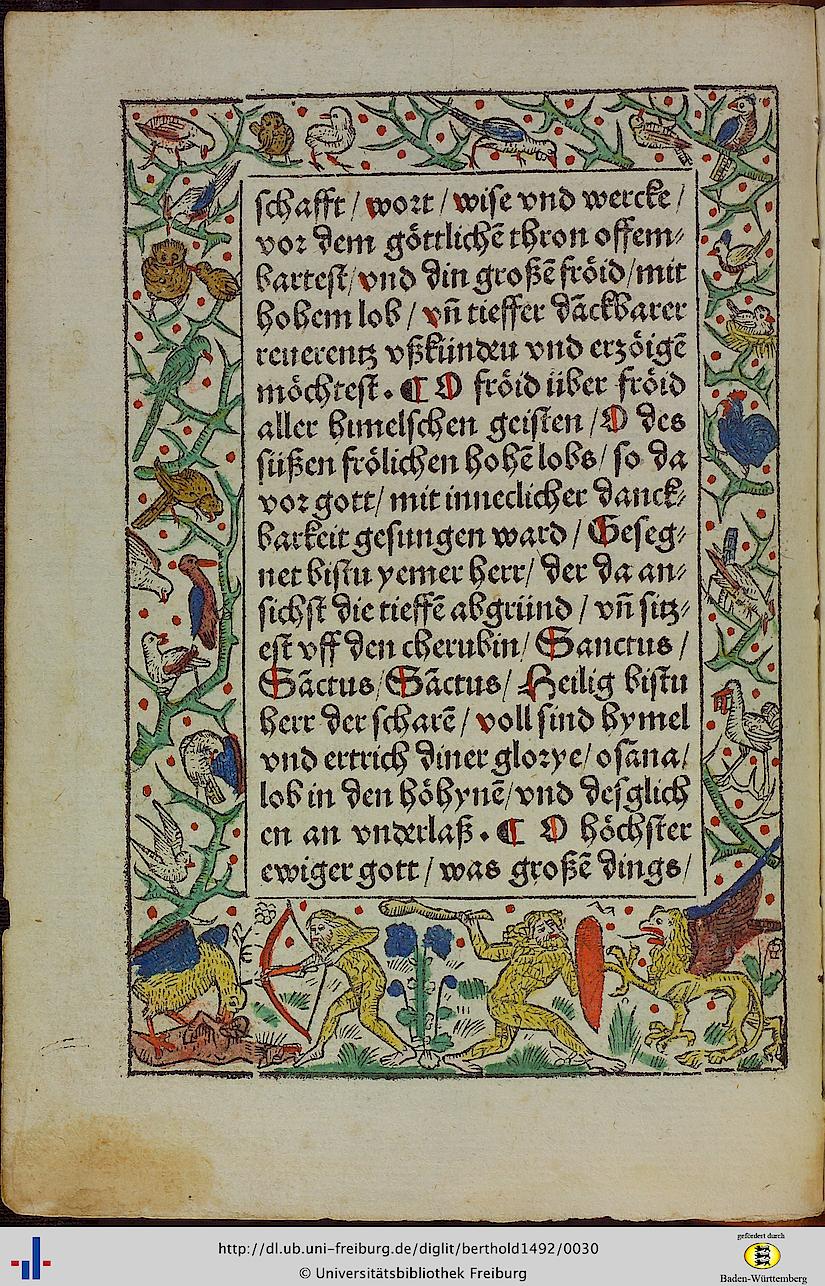 schafft / wort / wise vnd wercke /
vor dem göttlichē thron offem⸗
bartest / vnd din großē fröid / mit
hohem lob / vn̄ tieffer dāckbarer
reuerentz vßkünden vnd erzöigē
möchtest . ¶ O fröid über fröid
aller himelschen geisten / O des
süßen frölichen hohē lobs / so da
vor gott / mit inneclicher danck⸗
barkeit gesungen ward / Geseg⸗
net bistu yemer herr / der da an⸗
sichst die tieffē abgründ / vn̄ sitz⸗
est vff den cherubin / Sanctus /
Sāctus / Sāctus / Heilig bistu
herr der scharē / voll sind hymel
vnd ertrich diner glorye / osāna /
lob in den höhynē / vnd desglich
en an vnderlaß . ¶ O höchster
ewiger gott / was großē dings /
http://dl.ub.uni-freiburg.de/diglit/berthold1492/0030
© Universitätsbibliothek Freiburg
gefördert durch
Baden-Württemberg